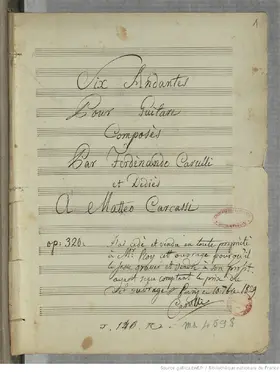 1
Six Andantes
Pour Guitare
Composés
Par Ferdinando Carulli
et Dédiés
A Matteo Carcassi
op: 320:
J'ai cédé et vendu en toute propriété
à Mr. cet ouvrage pour qu'il
le fasse graver et vendre à son profit
ayant reçu comptant le prix de
cet ouvrage Paris
Carulli
ma 4598
Source gallica.bnf.fr / Bibliothèque nationale de France